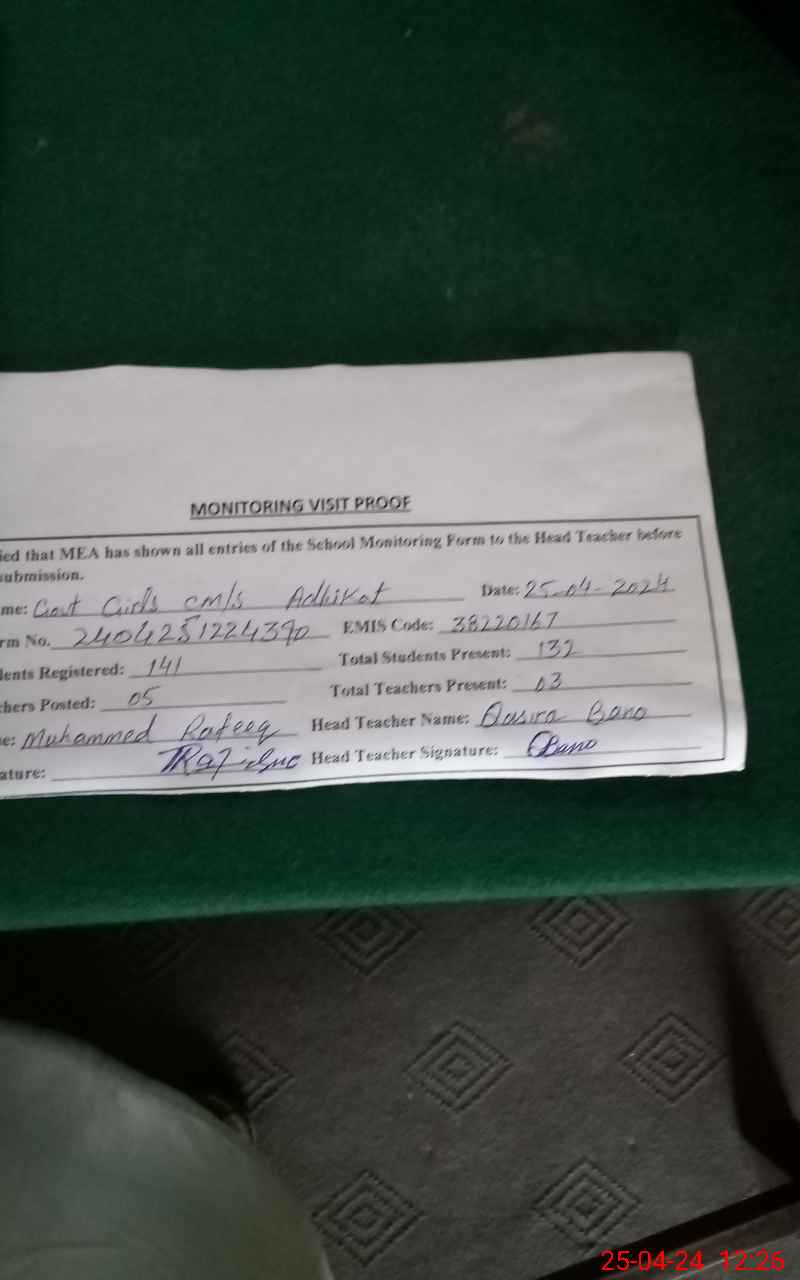 MONITORING VISIT PROOF
ied that MEA has shown all entries of the School Monitoring Form to the Head Teacher before
submission.
me: Govt Girls cm/s Adhikot Date: 25-04-2024
rm No. 2404251224390 EMIS Code: 38220167
dents Registered: 141 Total Students Present: 132
hers Posted: 05 Total Teachers Present: 03
e: Muhammed Rafeeq Head Teacher Name: Bano
ature: Head Teacher Signature: Bano
25-04-24 12:26